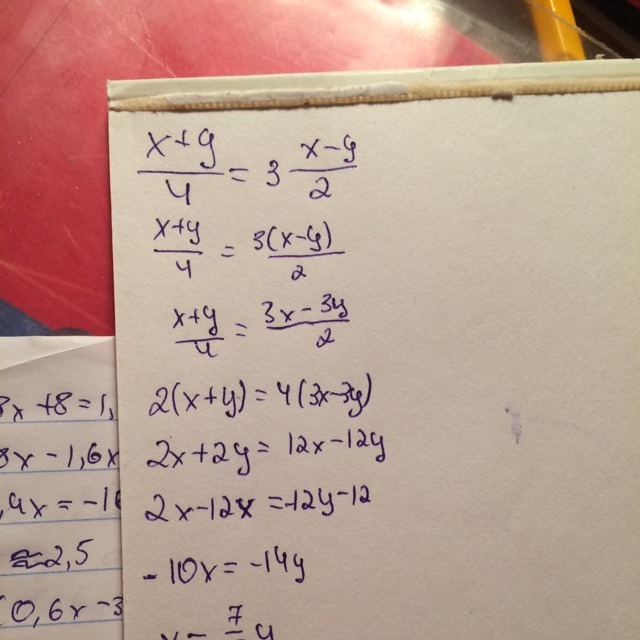 x+y/4 = 3 x-y/2
x+y/4 = 3(x-y)/2
x+y/4 = 3x-3y/2
2(x+y) = 4(3x-3y)
2x+2y = 12x-12y
2x-12x = -12y-12
-10x = -14y
x = 7/5 y
3x +8=1,
8x - 1,6x
,4x = -16
2,5
(0,6x-3